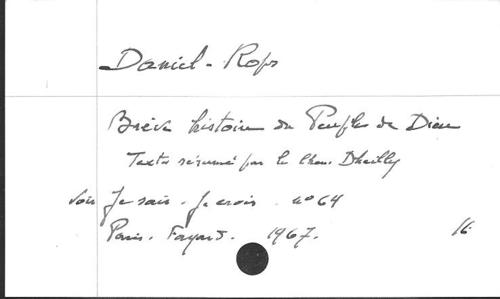 Daniel-Rops
Brève histoire du Peuple de Dieu
Texte résumé par le Chan. Dheilly
voir Je sais. Je crois. no 64
Paris. Fayard. 1967. 16